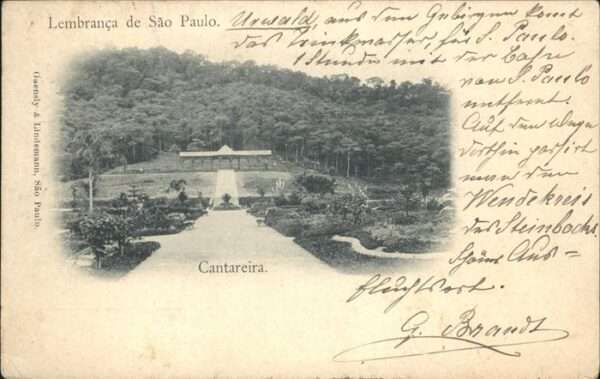 Lembrança de São Paulo.
Urwald, aus den Gebirgen kommt
das Trinkwasser, für S. Paulo.
1 Stunde mit der
von S. Paulo
entfernt.
Auf dem Wege
dorthin passirt
man den
Wendekreis
des Steinbocks.
Schöner Aus=
fluchtsort.
G. Brandt
Cantareira.
Guensly & Lindemann, São Paulo.